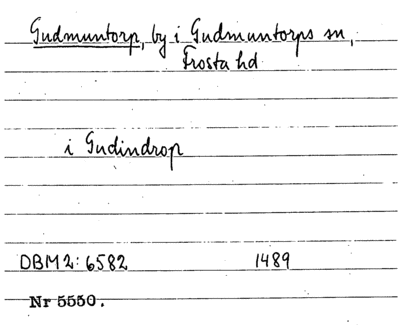 Gudmuntorp, by i Gudmuntorps sn,
Frosta hd
i Gudindrop
DBM2: 6582 1489
Nr 5550.